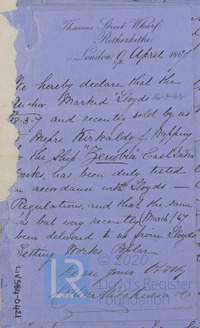 Thames Street Wharf,
Rotherhithe,
London, 9 April 1867
We hereby declare that the
Anchor Marked Lloyds
8.3.67 and recently sold by us
to Messrs Kirkaldy & Wapping
for the Ship "Zenobia" East India
Docks, has been duly tested
in accordance with Lloyds
Regulations, and that the same
has but very recently March/67
been delivered to us from Lloyds
Testing Works Poplar
© 2020
Lloyd's Register
Foundation
LV584-0421